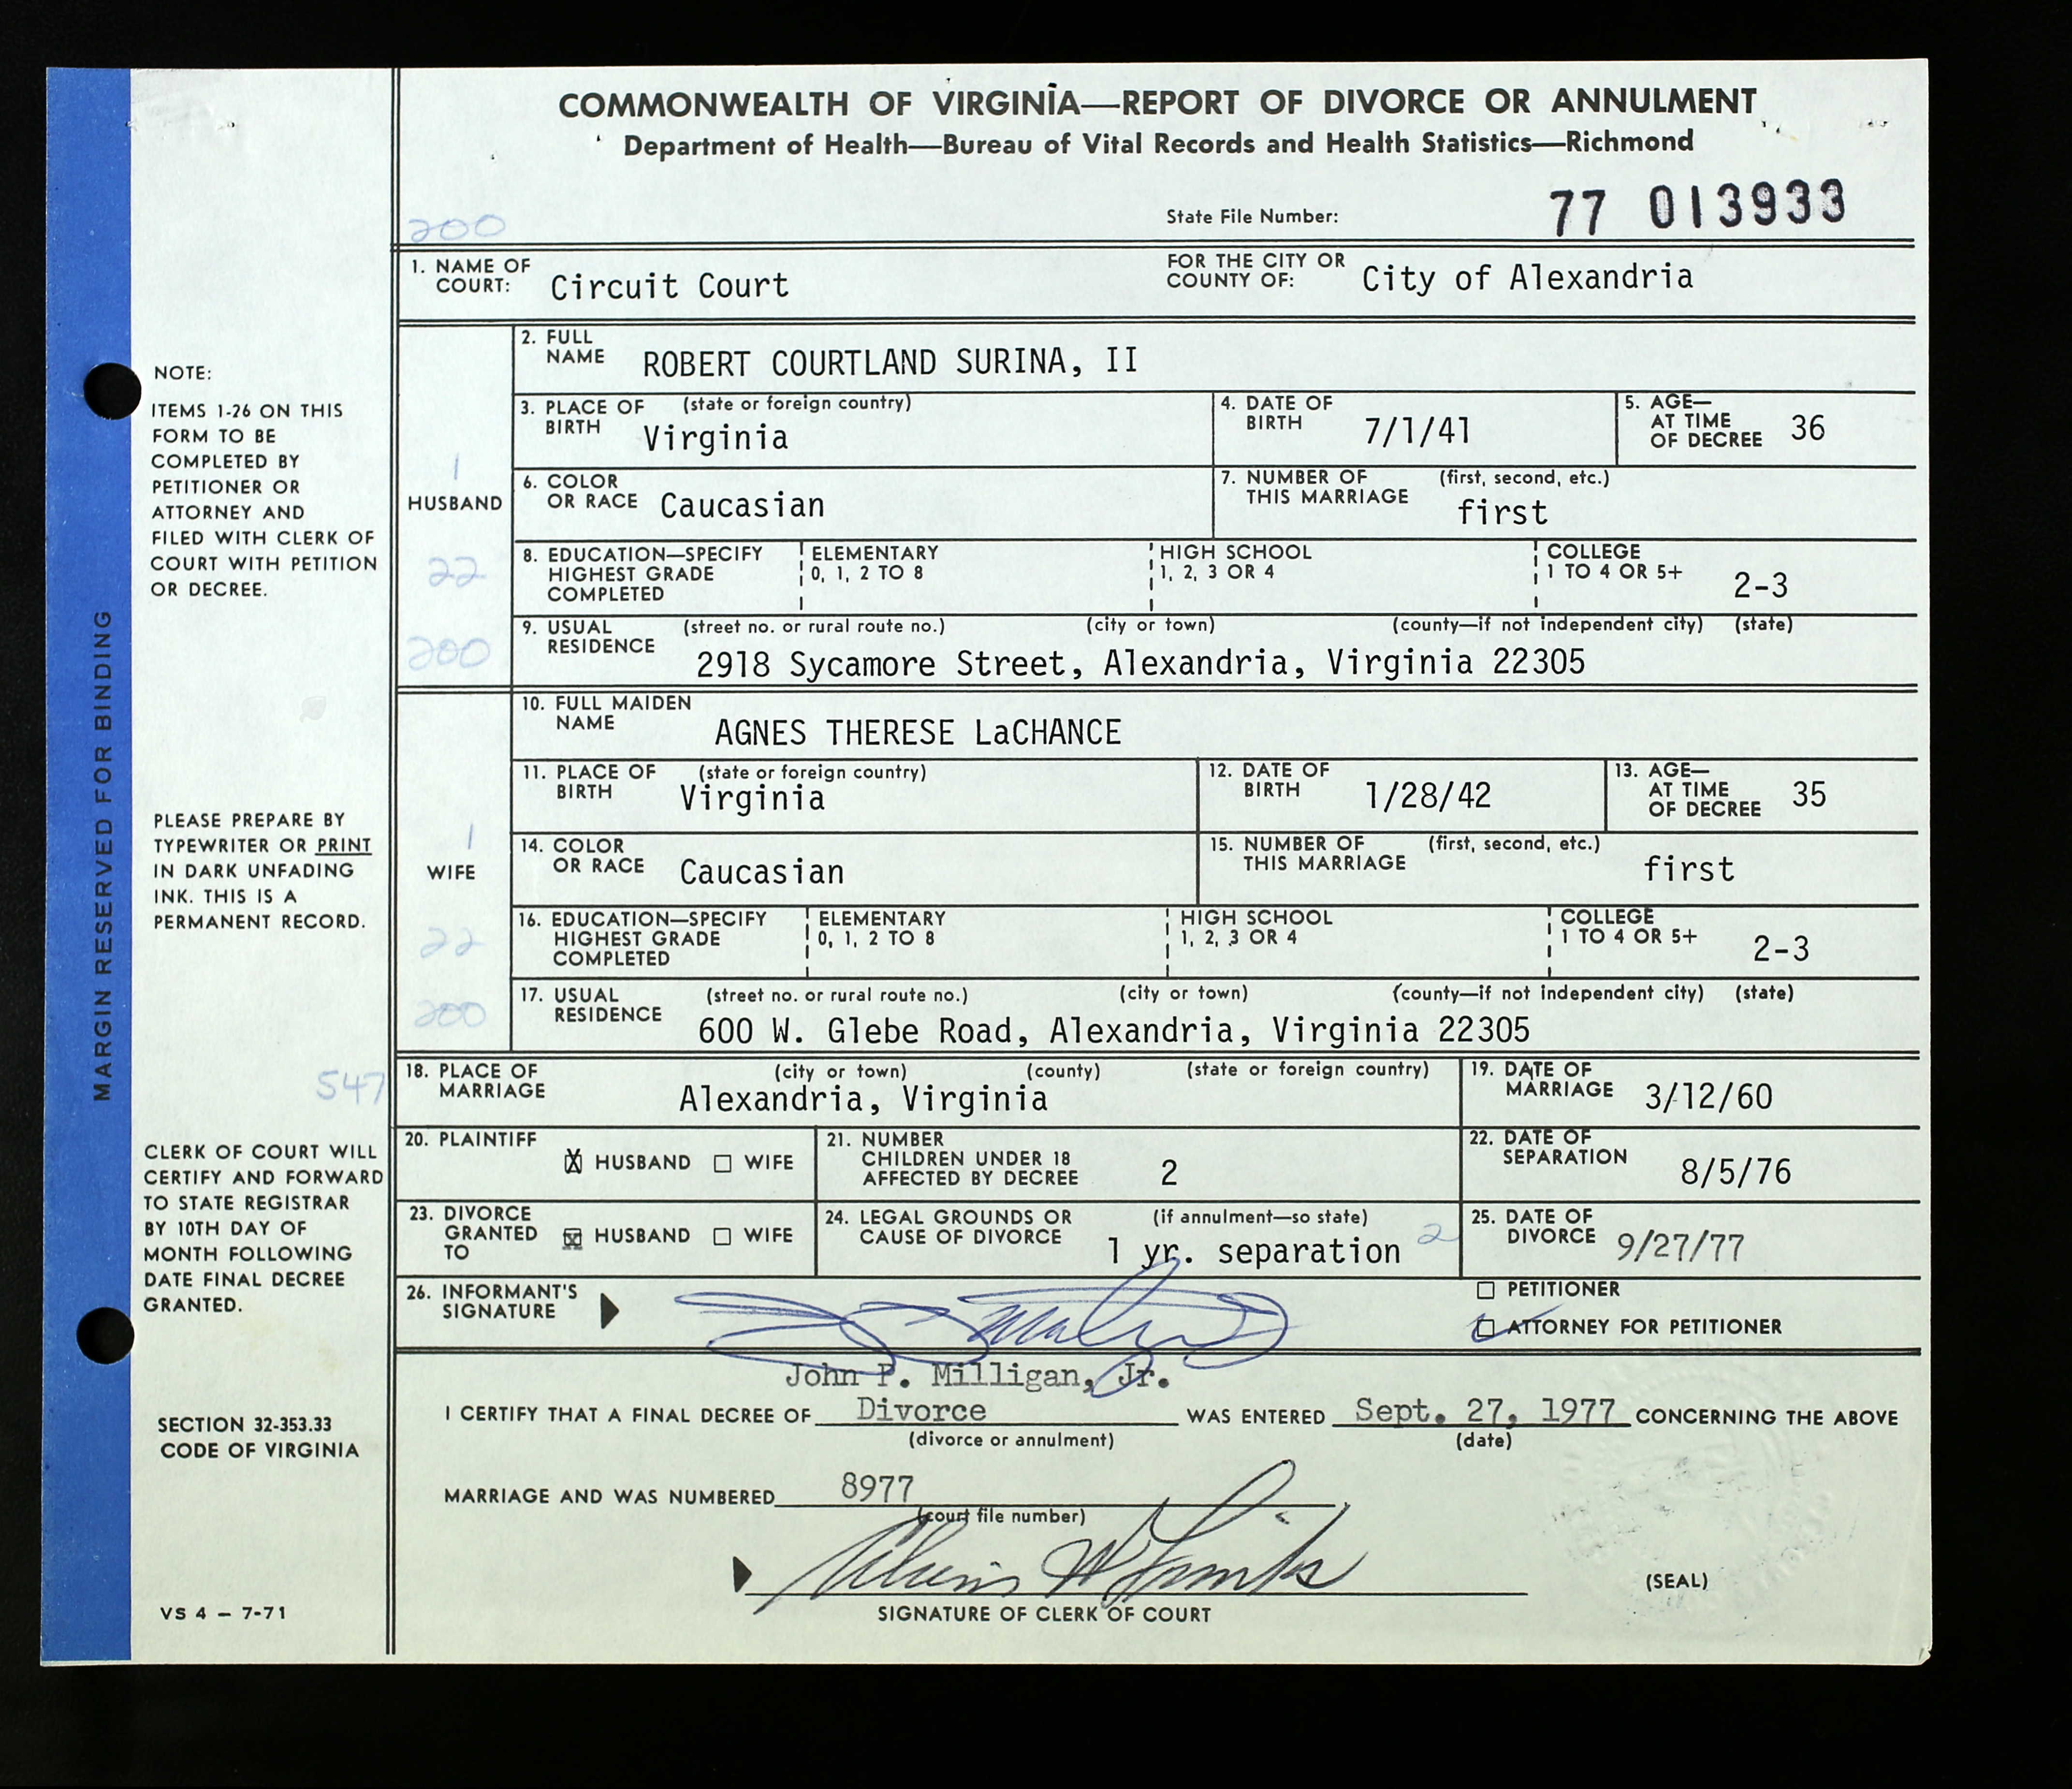 COMMONWEALTH OF VIRGINIA—REPORT OF DIVORCE OR ANNULMENT
Department of Health—Bureau of Vital Records and Health Statistics—Richmond
State File Number: 77 013933
200
1. NAME OF COURT: Circuit Court FOR THE CITY OR COUNTY OF: City of Alexandria
HUSBAND
1
22
200
2. FULL NAME ROBERT COURTLAND SURINA, II
3. PLACE OF BIRTH (state or foreign country) Virginia
4. DATE OF BIRTH 7/1/41
5. AGE—AT TIME OF DECREE 36
6. COLOR OR RACE Caucasian
7. NUMBER OF THIS MARRIAGE (first, second, etc.) first
8. EDUCATION—SPECIFY HIGHEST GRADE COMPLETED ELEMENTARY 0, 1, 2 TO 8 HIGH SCHOOL 1, 2, 3 OR 4 COLLEGE 1 TO 4 OR 5+ 2-3
9. USUAL RESIDENCE (street no. or rural route no.) (city or town) (county—if not independent city) (state)
2918 Sycamore Street, Alexandria, Virginia 22305
WIFE
1
22
200
10. FULL MAIDEN NAME AGNES THERESE LaCHANCE
11. PLACE OF BIRTH (state or foreign country) Virginia
12. DATE OF BIRTH 1/28/42
13. AGE—AT TIME OF DECREE 35
14. COLOR OR RACE Caucasian
15. NUMBER OF THIS MARRIAGE (first, second, etc.) first
16. EDUCATION—SPECIFY HIGHEST GRADE COMPLETED ELEMENTARY 0, 1, 2 TO 8 HIGH SCHOOL 1, 2, 3 OR 4 COLLEGE 1 TO 4 OR 5+ 2-3
17. USUAL RESIDENCE (street no. or rural route no.) (city or town) (county—if not independent city) (state)
600 W. Glebe Road, Alexandria, Virginia 22305
547
18. PLACE OF MARRIAGE (city or town) (county) (state or foreign country) Alexandria, Virginia
19. DATE OF MARRIAGE 3/12/60
20. PLAINTIFF X HUSBAND WIFE
21. NUMBER CHILDREN UNDER 18 AFFECTED BY DECREE 2
22. DATE OF SEPARATION 8/5/76
23. DIVORCE GRANTED TO X HUSBAND WIFE
24. LEGAL GROUNDS OR CAUSE OF DIVORCE (if annulment—so state) 1 yr. separation 2
25. DATE OF DIVORCE 9/27/77
26. INFORMANT'S SIGNATURE
PETITIONER
ATTORNEY FOR PETITIONER
John P. Milligan, Jr.
I CERTIFY THAT A FINAL DECREE OF Divorce WAS ENTERED Sept. 27, 1977 CONCERNING THE ABOVE
(divorce or annulment) (date)
MARRIAGE AND WAS NUMBERED 8977
(court file number)
SIGNATURE OF CLERK OF COURT
(SEAL)
MARGIN RESERVED FOR BINDING
NOTE:
ITEMS 1-26 ON THIS
FORM TO BE
COMPLETED BY
PETITIONER OR
ATTORNEY AND
FILED WITH CLERK OF
COURT WITH PETITION
OR DECREE.
PLEASE PREPARE BY
TYPEWRITER OR PRINT
IN DARK UNFADING
INK. THIS IS A
PERMANENT RECORD.
CLERK OF COURT WILL
CERTIFY AND FORWARD
TO STATE REGISTRAR
BY 10TH DAY OF
MONTH FOLLOWING
DATE FINAL DECREE
GRANTED.
SECTION 32-353.33
CODE OF VIRGINIA
VS 4 – 7-71